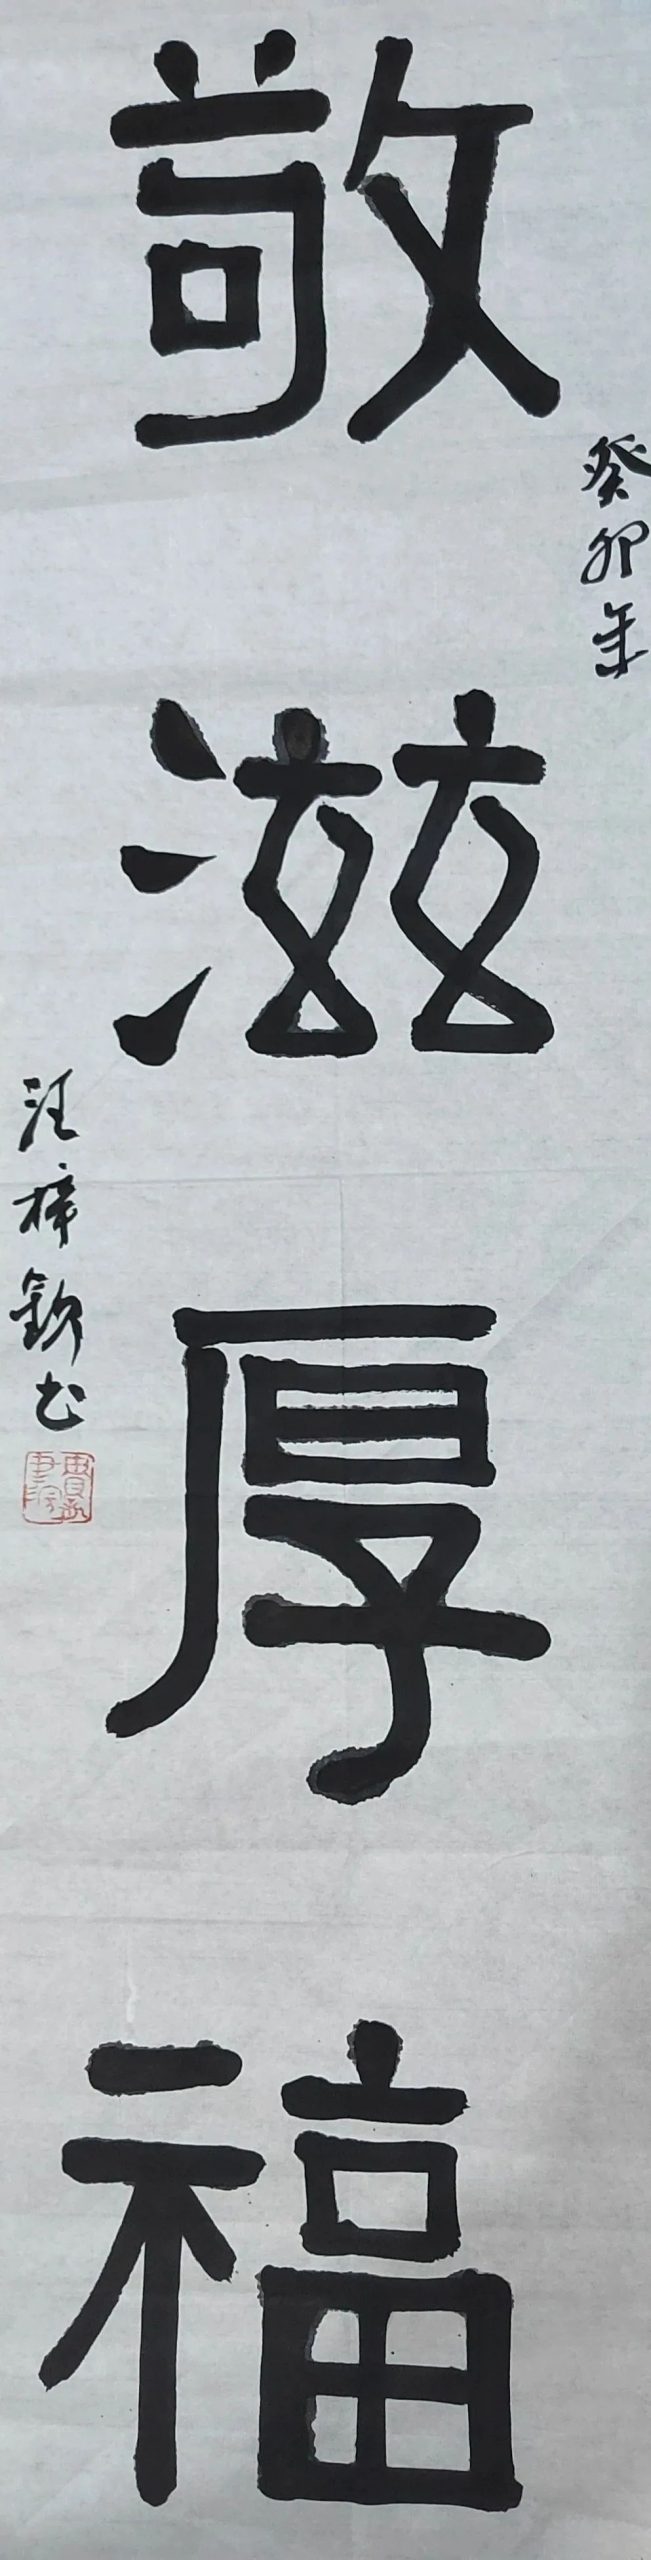 敬滋厚福
癸卯年
汪梓钦书